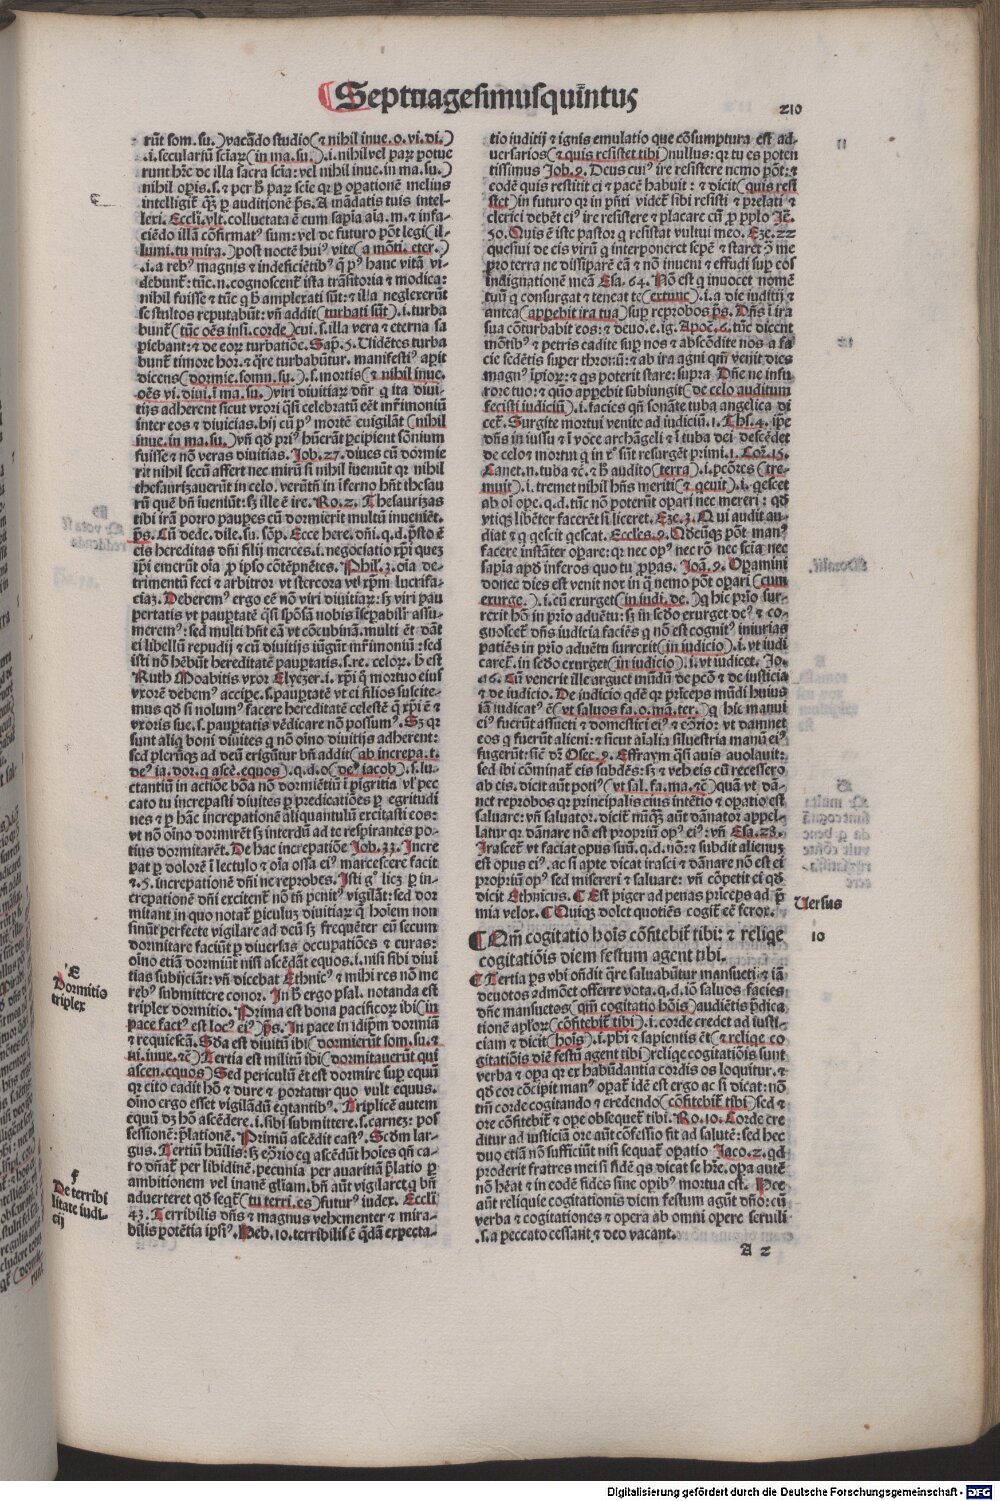 Septuagesimusquītus
210
rūt som. su.) vacādo studio (⁊ nihil inue. o. vi. di.)
.i. seculariū sciaꝝ (in ma. su.) .i. nihil vel paꝝ potue
runt hr̄e de illa sacra scīa: vel nihil inue. in ma. su.)
nihil oꝑis. s. ⁊ per ħ paꝝ scie qꝛ ꝑ oꝑationē melius
intelligit̄ qȝ ꝑ auditionē ps̄. A mādatis tuis intel-
lexi. Eccłi. vlt. colluctata ē cum sapīa aīa. m. ⁊ in fa-
ciēdo illā cōfirmatꝰ sum: vel de futuro pōt legi (il-
lumi. tu mira.) post noctē huiꝰ vite (a mōti. eter.)
.i. a rebꝰ magnis ⁊ indeficiētibꝰ q̄ pꝰ hanc vitā vi-
debunt̄: tūc. n. cognoscent̄ ista trāsitoria ⁊ modica:
nihil fuisse ⁊ tūc q ħ amplexati sūt: ⁊ illa neglexerūt
se stultos reputabūt: vn̄ addit (turbati sūt) .i. turba
bunt̄ (tūc oēs insi. corde) cui. s. illa vera ⁊ eterna sa
piebant: ⁊ de eoꝝ turbatiōe. Sap̄. 5. Uidētes turba
bunt̄ timore hor. ⁊ q̄re turbabūtur. manifestiꝰ aꝑit
dicens (dormie. somn. su.) .s. mortis (⁊ nihil inue.
oēs vi. diui. ī ma. su.) viri diuitiaꝝ dn̄r q ita diui-
tijs adherent sicut vxori qͣsi celebratū eēt mr̄imoniū
inter eos ⁊ diuicias. hij cū pꝰ mortē euigilāt (nihil
inue. in ma. su.) vn̄ qd̄ priꝰ hūerūt ꝑcipient sōnium
fuisse ⁊ nō veras diuitias. Job. 27. diues cū dormie
rit nihil secū affert nec mirū si nihil īueniūt qꝛ nihil
thesaurizauerūt in celo. verūtn̄ in īferno hn̄t thesau
rū quē bn̄ īueniūt: sȝ ille ē ire. Ro. 2. Thesaurizas
tibi irā ⁊c̄ porro pauꝑes cū dormierīt multū inueniēt.
ps̄. Cū dede. dile. su. sōp̄. Ecce here. dn̄i. q. d. ꝑsto ē
eis hereditas dn̄i filij merces. i. negociatio xp̄i quez
ip̄i emerūt oīa ꝓ ipso cōtēpnētes. Phil. 3. oīa de-
trimentū feci ⁊ arbitror vt stercora vt xp̄m lucrifa-
ciaȝ. Deberemꝰ ergo eē nō viri diuitiaꝝ: sȝ viri pau
pertatis vt pauꝑtatē qͣsi sp̄osā nobis īseꝑabilē assu-
meremꝰ: sed multi hn̄t eā vt cōcubinā. multi ēt dāt
ei libellū repudij ⁊ cū diuitijs iūgūt mr̄imoniū: sed
isti nō hēbūt hereditatē pauꝑtatis. s. re. celoꝝ. ħ est
Ruth Moabitis vxor Elyezer. i. xp̄i q̄ mortuo eius
vxorē debemꝰ acciꝑe. s. pauꝑtatē vt ei filios suscite-
mus qd̄ si nolumꝰ facere hereditatē celestē q̄ xp̄i ē ⁊
vxoris sue. s. pauꝑtatis vēdicare nō possumꝰ. Sȝ qꝛ
sunt aliq boni diuites q nō oīno diuitijs adherent:
sed plerūqȝ ad deū erigūtur bn̄ addit (ab increpa. t.
deꝰ ia. dor. q ascē. equos) .q. d. o (deꝰ iacob) .s. lu-
ctantiū in actiōe bōa nō dormiētiū ī pigritia vl̄ pec
cato tu increpasti diuites ꝑ predicatiōes ꝑ egritudi
nes ⁊ ꝑ hāc increpationē aliquantulū excitasti eos:
vt nō oīno dormirēt sȝ interdū ad te respirantes po-
tius dormitarēt. De hac increpatiōe Job. 33. Incre
pat ꝑ dolorē ī lectulo ⁊ oīa ossa eiꝰ marcescere facit
⁊. 5. increpationē dn̄i ne reprobes. Isti gͦ licȝ ꝑ in-
crepationē dn̄i excitent̄ nō tn̄ penitꝰ vigilāt: sed dor
mitant in quo notat̄ ꝑiculuȝ diuitiaꝝ q̄ hoīem non
sinūt perfecte vigilare ad deū sȝ freq̄nter eū secum
dormitare faciūt ꝑ diuersas occupatiōes ⁊ curas:
oīno etiā dormiūt nisi ascēdāt equos. i. nisi sibi diui
tias subijciāt: vn̄ dicebat Ethnicꝰ ⁊ mihi res nō me
rebꝰ submittere conor. In ħ ergo psal. notanda est
triplex dormitio. Prima est bona pacificoꝝ ibi (in
pace factꝰ est locꝰ eiꝰ) ps̄. In pace in idip̄m dormiā
⁊ requiescā. Scd̄a est diuitū ibi (dormierūt som. su. ⁊
ni. inue. ⁊c̄) Tertia est militū ibi (dormitauerūt qui
ascen. equos) Sed periculū ēt est dormire suꝑ equū
qꝛ cito cadit hō ⁊ dure ⁊ portatur quo vult equus.
oīno ergo esset vigilādū eqtantibꝰ. Triplicē autem
equū dȝ hō ascēdere. i. sibi submittere. s. carnez: pos
sessionē: p̄lationē. Primū ascēdit castꝰ. Scd̄m lar-
gus. Tertiū hūilis: sȝ ecōrio eq ascēdūt hoīes qn̄ ca-
ro dn̄at̄ per libidinē. pecunia per auaritiā p̄latio ꝑ
ambitionem vel inanē gliam. bn̄ aūt vigilaret q bn̄
aduerteret qd̄ seqt̄ (tu terri. es) futurꝰ iudex. Eccłi
43. Terribilis dn̄s ⁊ magnus vehementer ⁊ mira-
bilis potētia ipsiꝰ. Heb. 10. terribilis ē q̄dā expecta-
E
Dormitio
triplex
f
De terribi
litate iudi-
cij
tio iuditij ⁊ ignis emulatio que cōsumptura est ad-
uersarios (⁊ quis resistet tibi) nullus: qꝛ tu es poten
tissimus Job. 9. Deus cuiꝰ ire resistere nemo pōt: ⁊
eodē quis restitit ei ⁊ pacē habuit: ⁊ dicit (quis resi
stet) in futuro qꝛ in p̄nti videt̄ sibi resisti ⁊ prelati ⁊
clerici debēt eiꝰ ire resistere ⁊ placare eū ꝓ pplo Je͞.
50. Quis ē iste pastor q resistat vultui meo. Eze. 22
quesiui de eis virū q interponeret sepē ⁊ staret ꝯ me
pro terra ne dissiparē eā ⁊ nō inueni ⁊ effudi suꝑ eos
indignationē meā Esa. 64. Nō est q inuocet nomē
tuū q consurgat ⁊ teneat te (extunc) .i. a die iuditij ⁊
antea (appehit ira tua) suꝑ reprobos ps̄. Dn̄s ī ira
sua cōturbabit eos: ⁊ deuo. e. ig. Apoc̄. 6. tūc dicent
mōtibꝰ ⁊ petris cadite suꝑ nos ⁊ abscōdite nos a fa
cie sedētis super thronū: ⁊ ab ira agni qm̄ venit dies
magnꝰ īpioꝝ: ⁊ qs poterit stare: supra Dn̄e ne in fu
rore tuo: ⁊ quō appehit subiungit (de celo auditum
fecisti iudiciū) .i. facies qn̄ sonāte tuba angelica di
cet̄. Surgite mortui venite ad iudiciū. 1. Ths̄. 4. ip̄e
dn̄s in iussu ⁊ ī voce archāgeli ⁊ ī tuba dei descēdet
de celo ⁊ mortui q in xͦ sūt resurgēt primi. 1. Coꝝ. 15.
Canet. n. tuba ⁊c̄. ⁊ ħ audito (terra) .i. pctōres (tre-
muit) .i. tremet nihil hn̄s meriti (⁊ qeuit) .i. qescet
ab oī oꝑe. q. d. tūc nō poterūt oꝑari nec mereri: qd̄
vtiqȝ libēter facerēt si liceret. Eze. 3. Qui audit au-
diat ⁊ q qescit qescat. Eccles. 9. Qd̄cūqȝ pōt manꝰ
facere instāter oꝑare: qꝛ nec opꝰ nec rō nec scīa nec
sapīa apd̄ inferos quo tu ꝓꝑas. Joā. 9. Oꝑamini
donec dies est venit nox in q̄ nemo pōt oꝑari (cum
exurge.) .i. cū exurget (in iudi. de.) q hic prīo sur-
rexit hōn in prīo aduētu: sȝ in sc̄do exurget deꝰ ⁊ co-
gnoscet̄ dn̄s iudicia faciēs q nō est cognitꝰ iniurias
patiēs in prīo aduētu surrexit (in iudicio) .i. vt iudi
caret̄. in sc̄do exurget (in iudicio) .i. vt iudicet. Jo.
16. Cū venerit ille arguet mūdū de pctō ⁊ de iusticia
⁊ de iudicio. De iudicio qdē qꝛ pͥnceps mūdi huius
iā iudicatꝰ ē (vt saluos fa. o. mā. ter.) q hic manui
eiꝰ fuerūt assueti ⁊ domestici eiꝰ ⁊ ecōrio: vt damnet
eos q fuerūt alieni: ⁊ sicut aīalia siluestria manū eiꝰ
fugerūt: sicē dr̄ Osee. 9. Effraym qͣsi auis auolauit:
sed ibi cōminat̄ eis subdēs: sȝ ⁊ veh eis cū recessero
ab eis. dicit aūt potiꝰ (vt sal. fa. ma. ⁊c̄) quā vt dā-
net reprobos qꝛ principalis eius intētio ⁊ oꝑatio est
saluare: vn̄ saluator. dicit̄ nūqȝ aūt dānator appel-
latur qꝛ dānare nō est propriū opꝰ eiꝰ: vn̄ Esa. 28.
Irascet̄ vt faciat opus suū. q. d. nō: ⁊ subdit alienuȝ
est opus eiꝰ. ac si apte dicat irasci ⁊ dānare nō est ei
propriū opꝰ sed misereri ⁊ saluare: vn̄ cōpetit ei qd̄
dicit Ethnicus. ¶ Est piger ad penas prīceps ad p̄
mia velox. ¶ Quiqȝ dolet quotiēs cogit̄ eē ferox.
¶ Qm̄ cogitatio hoīs cōfitebit̄ tibi: ⁊ reliqe
cogitatiōis diem festum agent tibi.
¶ Tertia ps vbi on̄dit q̄re saluabūtur mansueti ⁊ iā
deuotos admōet offerre vota. q. d. iō saluos facies
dn̄e mansuetos (qm̄ cogitatio hōis) audiētis p̄dica
tionē aplo̅ꝝ (cōfitebit̄ tibi) .i. corde credet ad iusti-
ciam ⁊ dicit (hoīs) .i. phi ⁊ sapientis ēt (⁊ reliqe co
gitatiōis diē festū agent tibi) reliqe cogitatiōis sunt
verba ⁊ oꝑa qꝛ ex habūdantia cordis os loquitur. ⁊
qd̄ cor cōcipit manꝰ oꝑat̄ idē est ergo ac si dicat: nō
tm̄ corde cogitando ⁊ credendo (cōfitebit̄ tibi) sed ⁊
ore cōfitebit̄ ⁊ oꝑe obsequet̄ tibi. Ro. 10. Corde cre
ditur ad iusticiā ore aūt cōfessio fit ad salutē: sed hec
duo etiā nō sufficiūt nisi sequat̄ oꝑatio Jaco. 2. qd
proderit fratres mei si fidē qs dicat se hr̄e. oꝑa autē
nō hēat ⁊ in eodē fides sine oꝑibꝰ mortua est. Hec
aūt reliquie cogitationis diem festum agūt dn̄o: cū
verba ⁊ cogitationes ⁊ opera ab omni opere seruili
.s. a peccato cessant ⁊ deo vacant.
A 2
Uersus
10
Digitalisierung gefördert durch die Deutsche Forschungsgemeinschaft - DFG